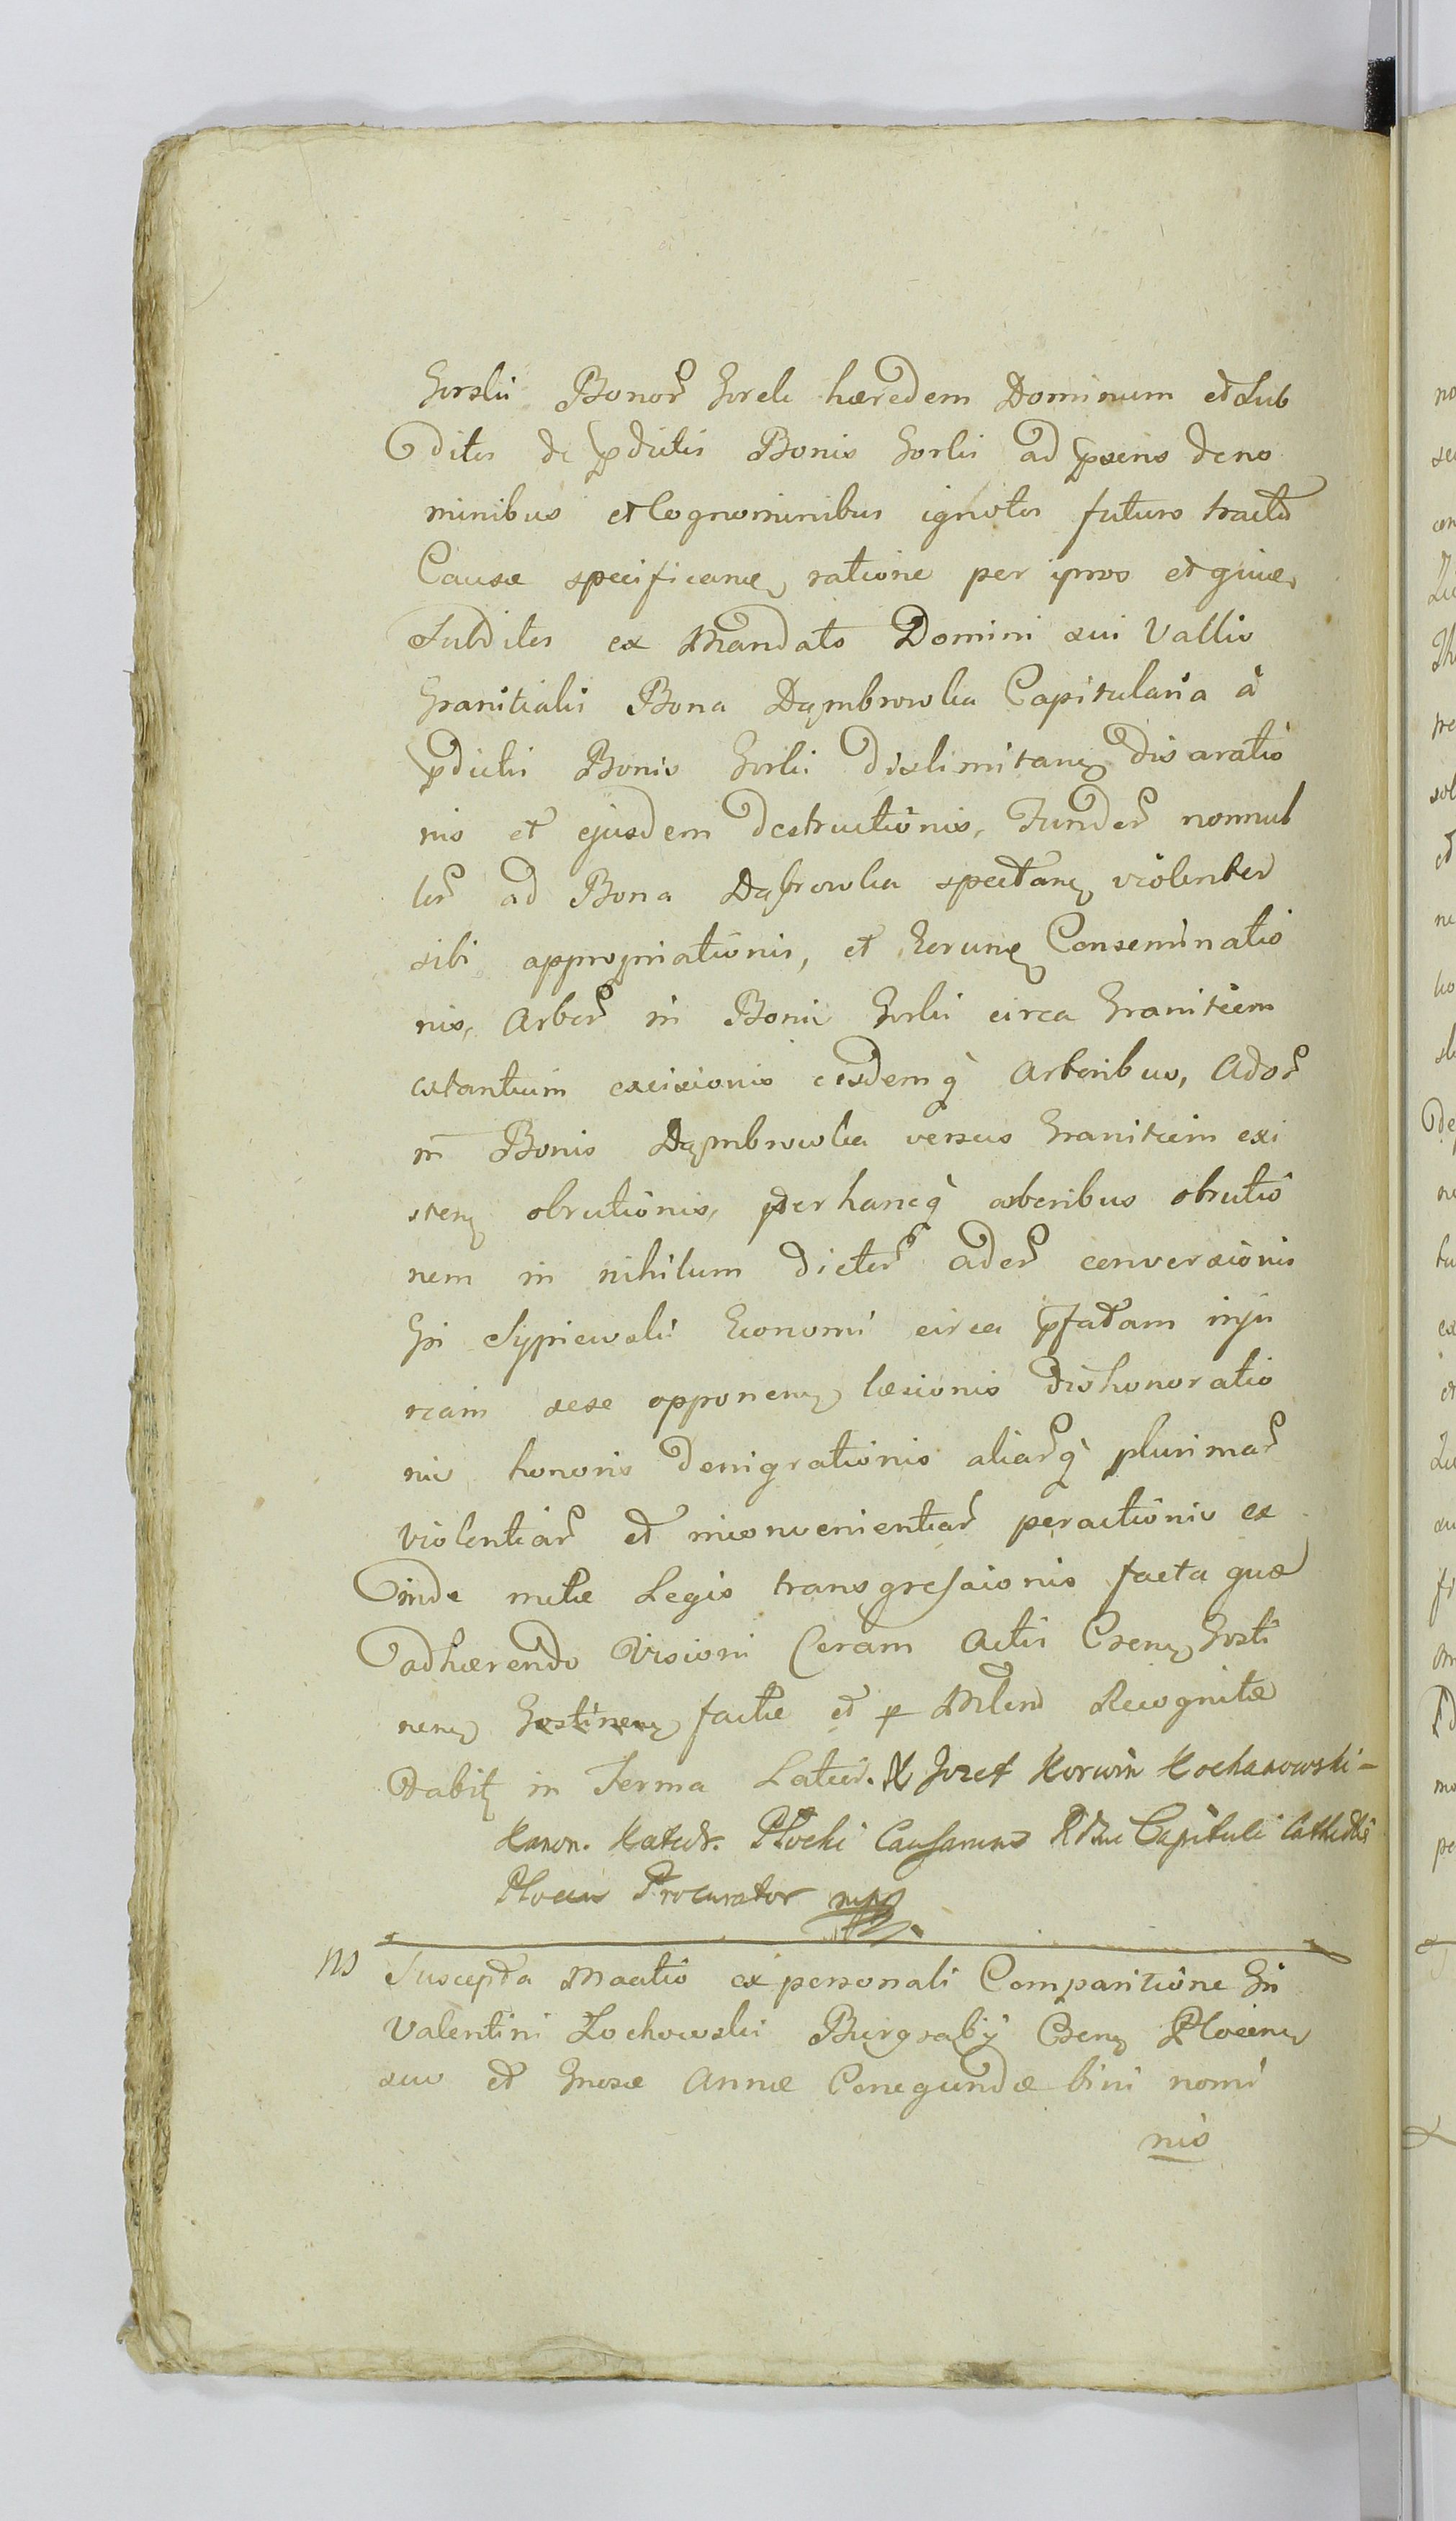 Gorskii Bonor Gorski hæredem Dominum et Sub
ditos de pdictis Bonis Gorski ad psens deno
minibus et Cognominibus ignotis futuro tractu
Causæ specificanę ratione per ipsos et
Subditos ex Mandato Domini sui Vallis
Granitialis Bona Dąmbrowka Capitularia à
pdictis Bonis Gorski dislimitanę disaratio
nis et ejusdem destructionis, Fundor nonnul
lor ad Bona Dąbrowka spectanę violenter
sibi appropriationis, et Eorunę Conseminatio
nis, Arbor in Bonis Gorski circa Graniciem
extantium excisionis eisdemq̀ Arboribus, Ador
in Bonis Dąmbrowka versus Granitiem exi
stenę obrutionis, perhancq̀ arboribus obrutio
nem in nihilum dictor ador conversionis
Gsi Sypniewski Economi circa pfatam inju
riam sese opponenę læsionis dishonoratio
nis honoris denigrationis aliarq̀ plurimar
violentiar et inconvenientiar peractionis ex
inde multæ Legis transgressionis facta quæ
adhærendo Visioni Coram Actis Csenę Gosti
nenę Gostinenę factæ et p Mlem Recognitæ
Dabit in Termo Latius. X Jozef Korwin Kochanowski -
Kanon. Katedr. Płocki Causarum Rdmi Capituli Cathedlis
Plocen Procurator mp
NS Suscepta Mactio ex personali Comparitione Gsi
Valentini Zochowski Burgrabij Csenę Plocenę
suo et Gnosæ Annæ Conegundæ bini nomi
nis